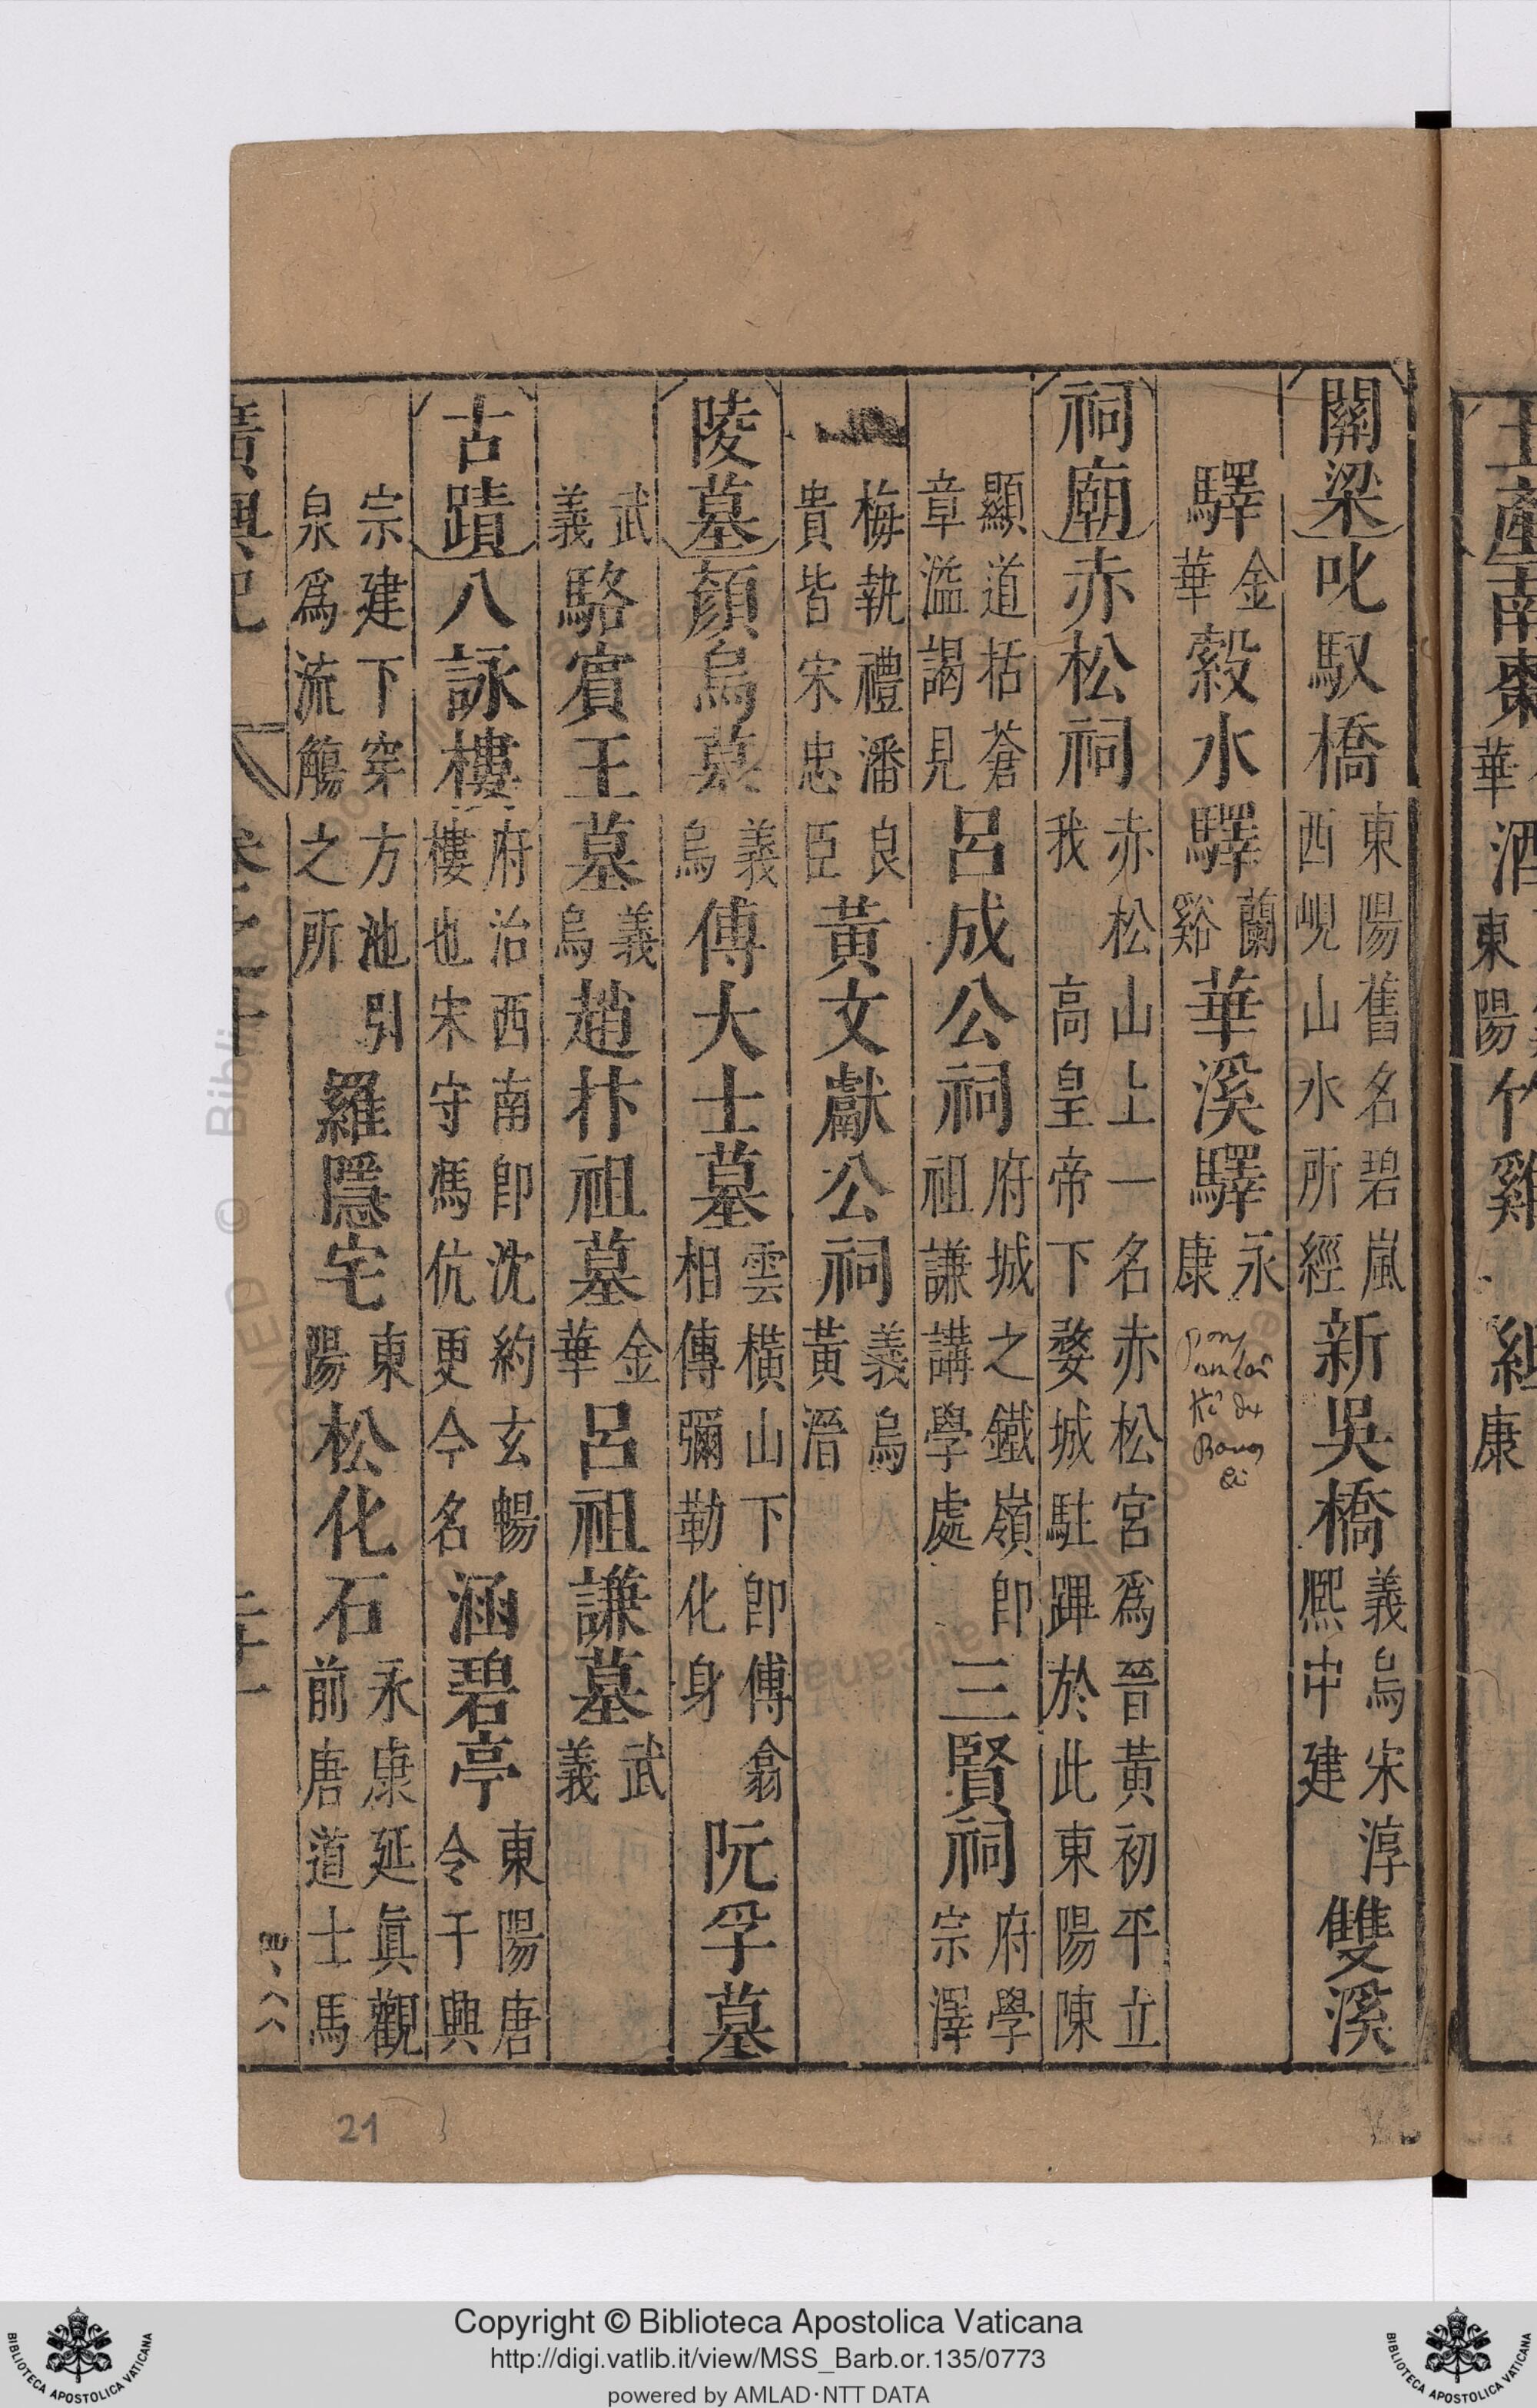 關梁叱馭橋東陽舊名碧嵐西峴山水所經新吳橋義烏宋淳熈中建雙溪
驛金華縠水驛蘭谿華溪驛永康
祠廟赤松祠赤松山上一名赤松宮爲晉黃初平立我高皇帝下婺城駐蹕於此東陽陳
顯道括蒼章溢謁見呂成公祠府城之鐵嶺即祖謙講學處三賢祠府學宗澤
梅執禮潘良貴皆宋忠臣黃文獻公祠義烏黃溍
陵墓顏烏墓義烏傅大士墓雲橫山下即傅翕相傳彌勒化身阮孚墓
武義駱賓王墓義烏趙抃祖墓金華呂祖謙墓武義
古蹟八詠樓府治西南即沈約玄暢樓也宋守馮伉更今名涵碧亭東陽唐令于興
宗建下穿方池引泉爲流觴之所羅隱宅東陽松化石永康延眞觀前唐道士馬
廣輿記
卷之十
二十一
21
土產南棗
華
酒
東陽
竹雞
康
Copyright © Biblioteca Apostolica Vaticana
http://digi.vatlib.it/view/MSS_Barb.or.135/0773
powered by AMLAD·NTT DATA
BIBLIOTECA APOSTOLICA VATICANA
BIBLIOTECA APOSTOLICA VATICANA